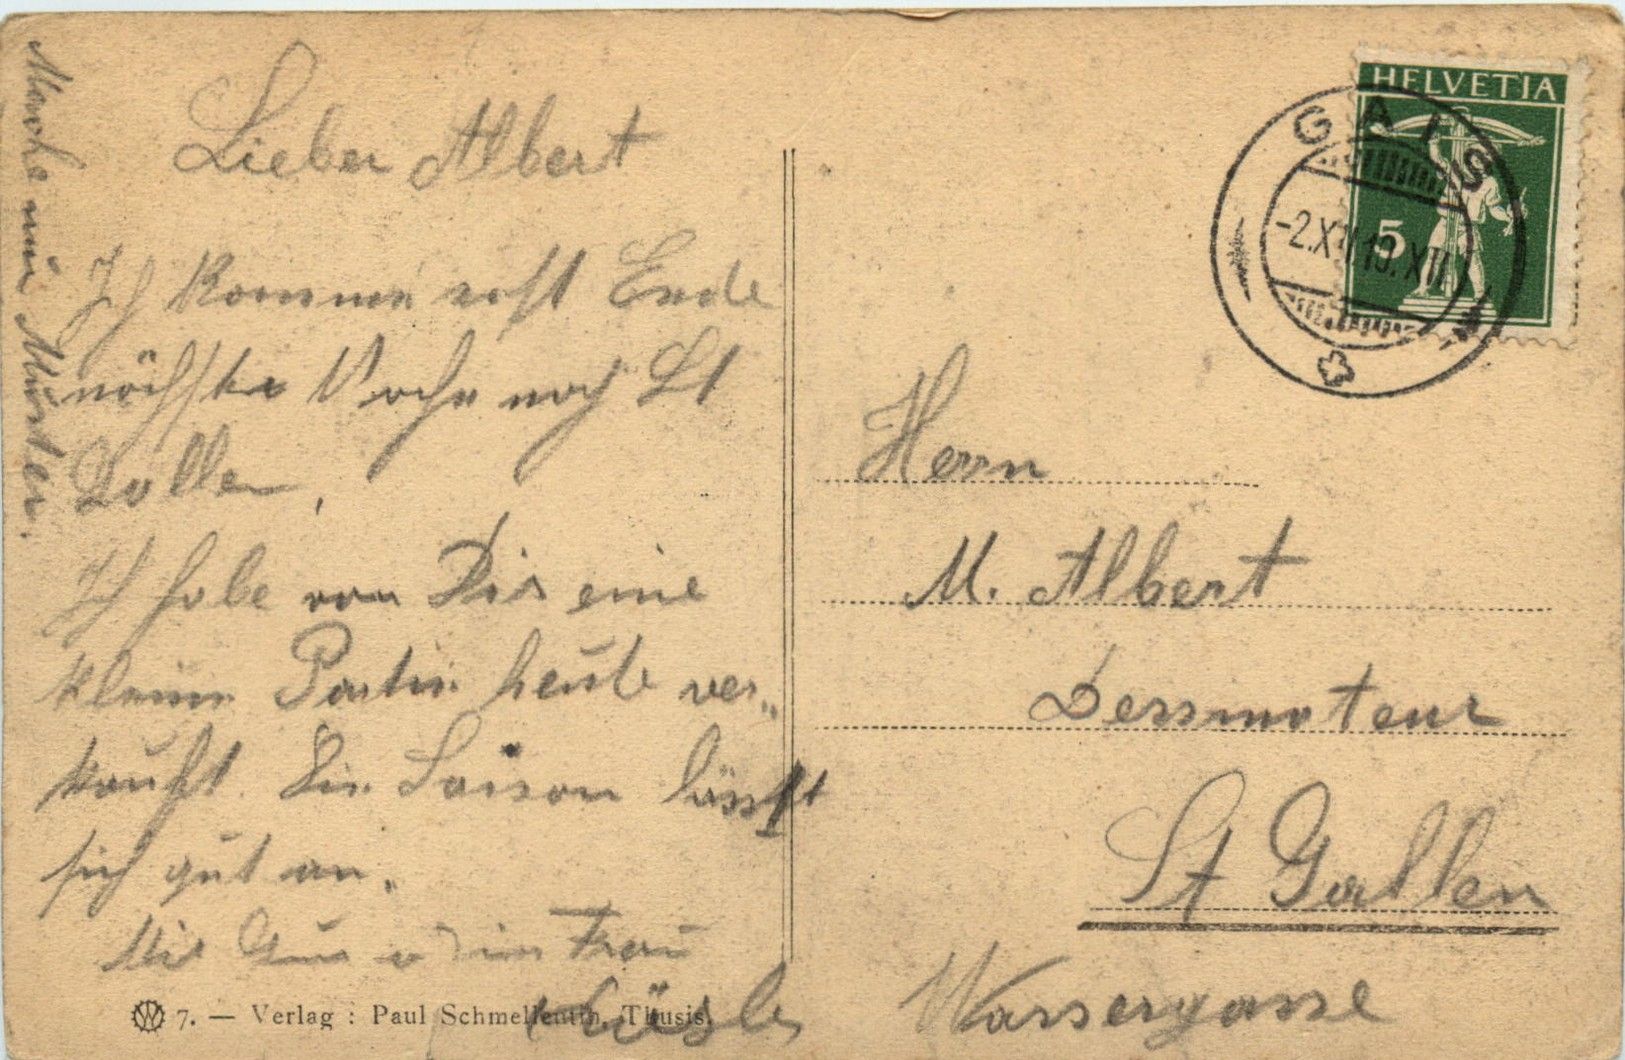 Lieber Albert
Ich komme erst Ende
nächste Woche nach St
Gallen,
Ich habe von Dir eine
kleine Partie heute ver„
kauft. Die Saison lässt
sich gut an.
Frau
Mache nun Muster.
7. — Verlag : Paul Schmelleutin, Thusis.
HELVETIA
5
GAIS
-2.XII 19.XII
Herrn
M. Albert
Dessinateur
St Gallen
Wassergasse